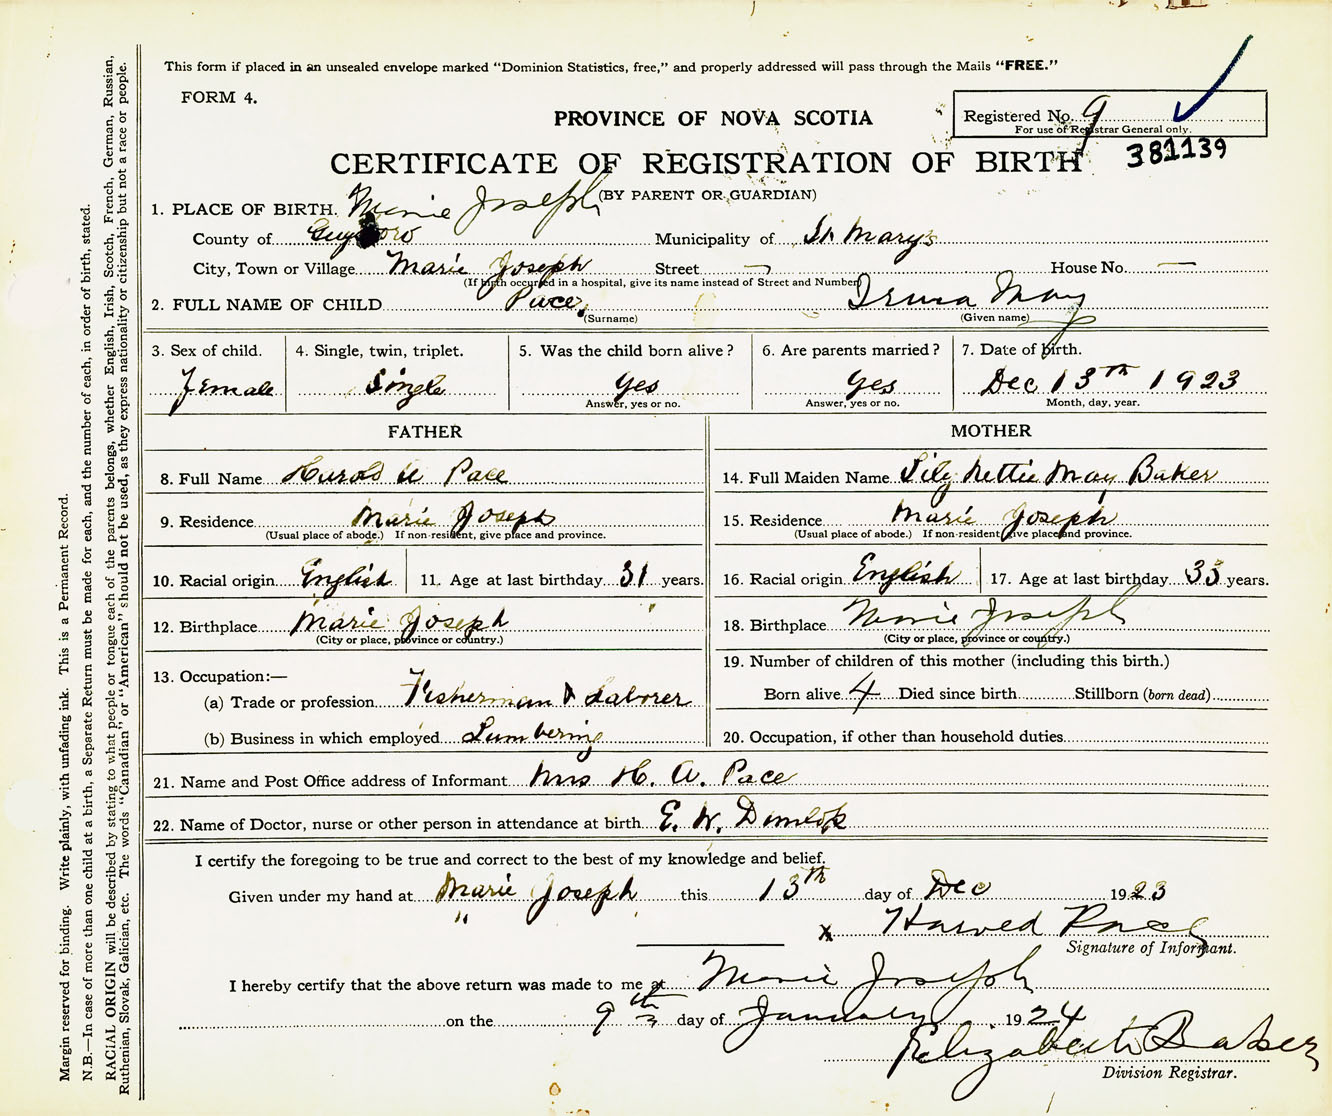 This form if placed in an unsealed envelope marked "Dominion Statistics, free," and properly addressed will pass through the Mails "FREE."
FORM 4.
PROVINCE OF NOVA SCOTIA
Registered No. 9
For use of Registrar General only.
381139
CERTIFICATE OF REGISTRATION OF BIRTH
(BY PARENT OR GUARDIAN)
1. PLACE OF BIRTH. Marie Joseph
County of Guysboro Municipality of St Mary's
City, Town or Village Marie Joseph Street — House No. —
(If birth occurred in a hospital, give its name instead of Street and Number)
2. FULL NAME OF CHILD Pace, Irma May
(Surname) (Given name)
3. Sex of child. 4. Single, twin, triplet. 5. Was the child born alive? 6. Are parents married? 7. Date of birth.
Female Single Yes Yes Dec 13th 1923
Answer, yes or no. Answer, yes or no. Month, day, year.
FATHER MOTHER
8. Full Name Harold A Pace 14. Full Maiden Name Lily Nettie May Baker
9. Residence Marie Joseph 15. Residence Marie Joseph
(Usual place of abode.) If non-resident, give place and province. (Usual place of abode.) If non-resident, give place and province.
10. Racial origin English 11. Age at last birthday 31 years. 16. Racial origin English 17. Age at last birthday 33 years.
12. Birthplace Marie Joseph " 18. Birthplace Marie Joseph
(City or place, province or country.) (City or place, province or country.)
13. Occupation:— 19. Number of children of this mother (including this birth.)
(a) Trade or profession Fisherman & Laborer Born alive 4 Died since birth Stillborn (born dead)
(b) Business in which employed Lumbering 20. Occupation, if other than household duties
21. Name and Post Office address of Informant Mrs H. A. Pace
22. Name of Doctor, nurse or other person in attendance at birth E. W. Dunlop
I certify the foregoing to be true and correct to the best of my knowledge and belief.
Given under my hand at Marie Joseph this 13th day of Dec 1923
" " x Pace
Signature of Informant.
I hereby certify that the above return was made to me at Marie Joseph
on the 9th day of January 1924
Elizabeth Baker
Division Registrar.
Margin reserved for binding. Write plainly, with unfading ink. This is a Permanent Record.
N.B.—In case of more than one child at a birth, a Separate Return must be made for each, and the number of each, in order of birth, stated.
RACIAL ORIGIN will be described by stating to what people or tongue each of the parents belongs, whether English, Irish, Scotch, French, German, Russian,
Ruthenian, Slovak, Galician, etc. The words "Canadian" or "American" should not be used, as they express nationality or citizenship but not a race or people.